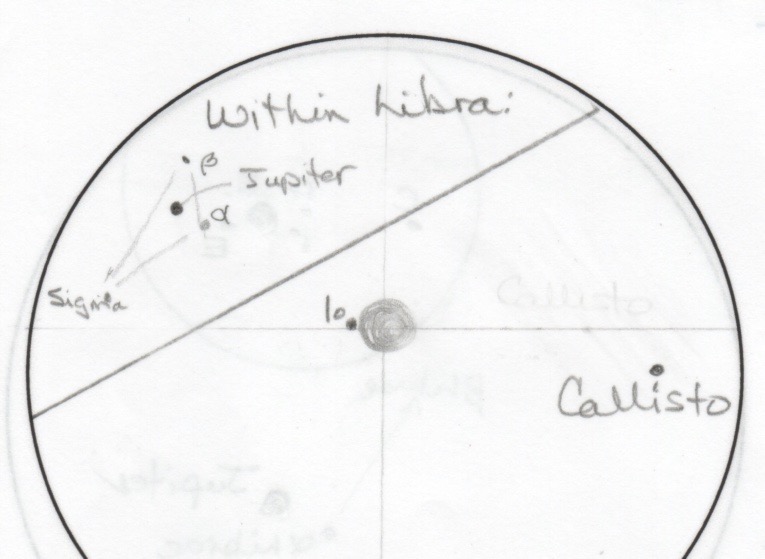 Within Libra:
β
Jupiter
α
Sigma
Io
Callisto